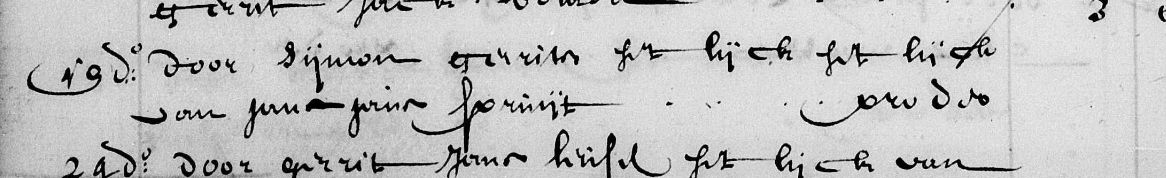 gerrit Jack 3
19 d:o door Sijmon gerrits het lijck het lijck
van Jans Jans spruijt . . . pro deo
29 d:o door gerrit Jans het lijck van